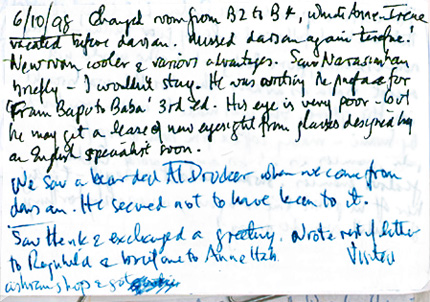 6/10/98 Changed room from B2 to B4, which Anne-Irene
vacated before darsan. Missed darsan again therefore!
New room cooler & various advantages. Saw Narasimhan
briefly - I wouldn't stay. He was working the preface for
'From Bapu to Baba' 3rd ed. His eye is very poor - but
he may get a lease of new eyesight from glasses designed by
an English specialist soon.
We saw a bearded Al Drucker when we came from
darsan. He seemed not to have been to it.
Saw Henk & exchanged a greeting. Wrote rest of letter
to Reginheld & brief one to Anne Visited
ashram shop & got